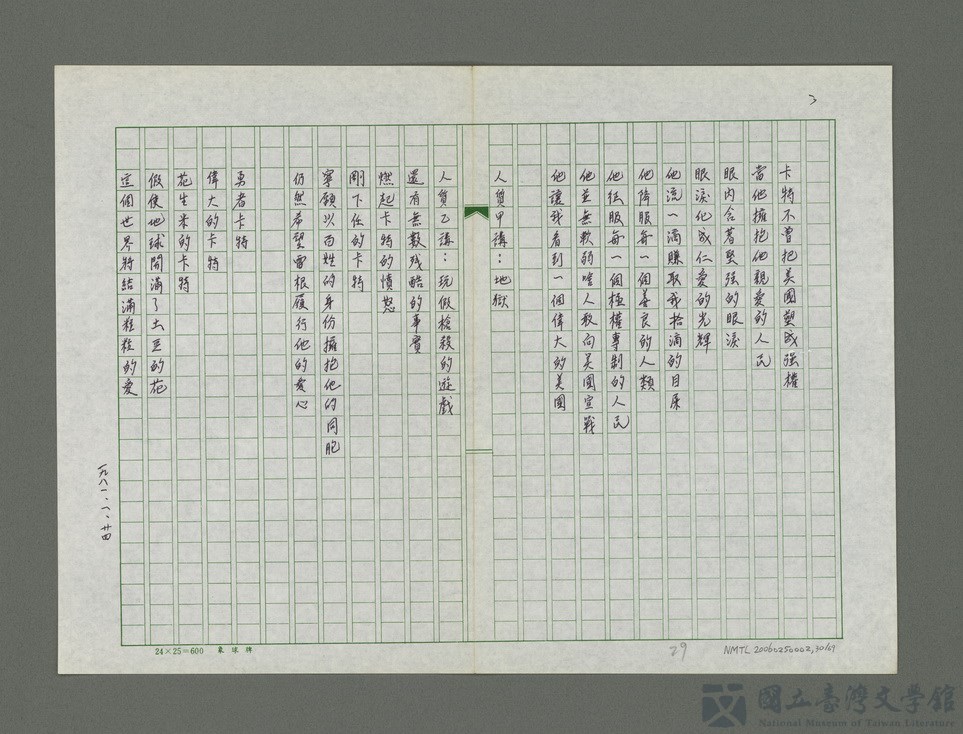 3
卡特不曾把美國塑成強權
當他擁抱他親愛的人民
眼內含著堅強的眼淚
眼淚化成仁愛的光輝
他流一滴賺取我拾滴的目屎
他降服每一個善良的人類
他征服每一個極權專制的人民
他並無軟弱啥人敢向美國宣戰
他讓我看到一個偉大的美國
人質甲講：地獄
人質乙講：玩假槍殺的遊戲
還有無數殘酷的事實
燃起卡特的憤怒
剛下任的卡特
寧願以百姓的身份擁抱他的同胞
仍然希望雷根履行他的愛心
勇者卡特
偉大的卡特
花生米的卡特
假使地球開滿了土豆的花
這個世界將結滿粒粒的愛
一九八一、一、廿四
24×25=600
29
NMTL 20060250002,30/69
國立臺灣文學館
National Museum of Taiwan Literature